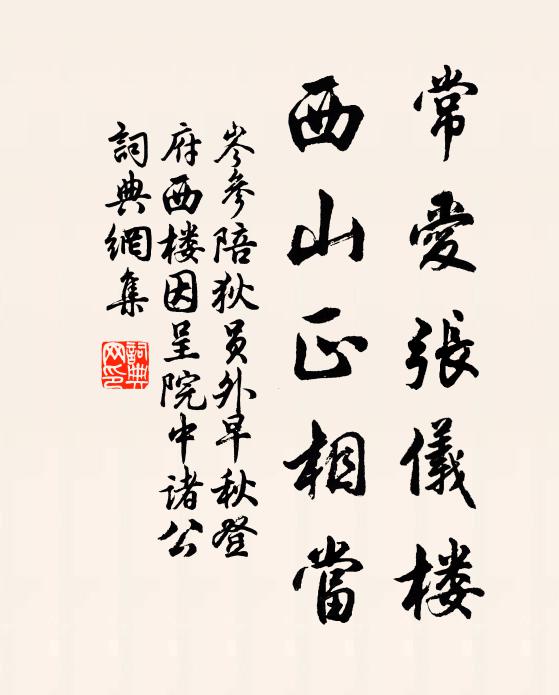 常愛張儀楼
西山正相當
岑參陪狄員外早秋登
府西楼因呈院中诸公
詞典網集
詞典网印